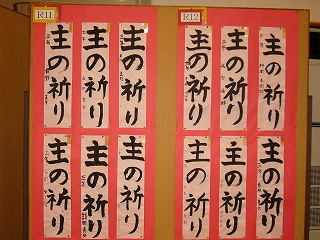 R11
R12
主の祈り
主の祈り
主の祈り
主の祈り
主の祈り
主の祈り
主の祈り
主の祈り
主の祈り
主の祈り
主の祈り
主の祈り